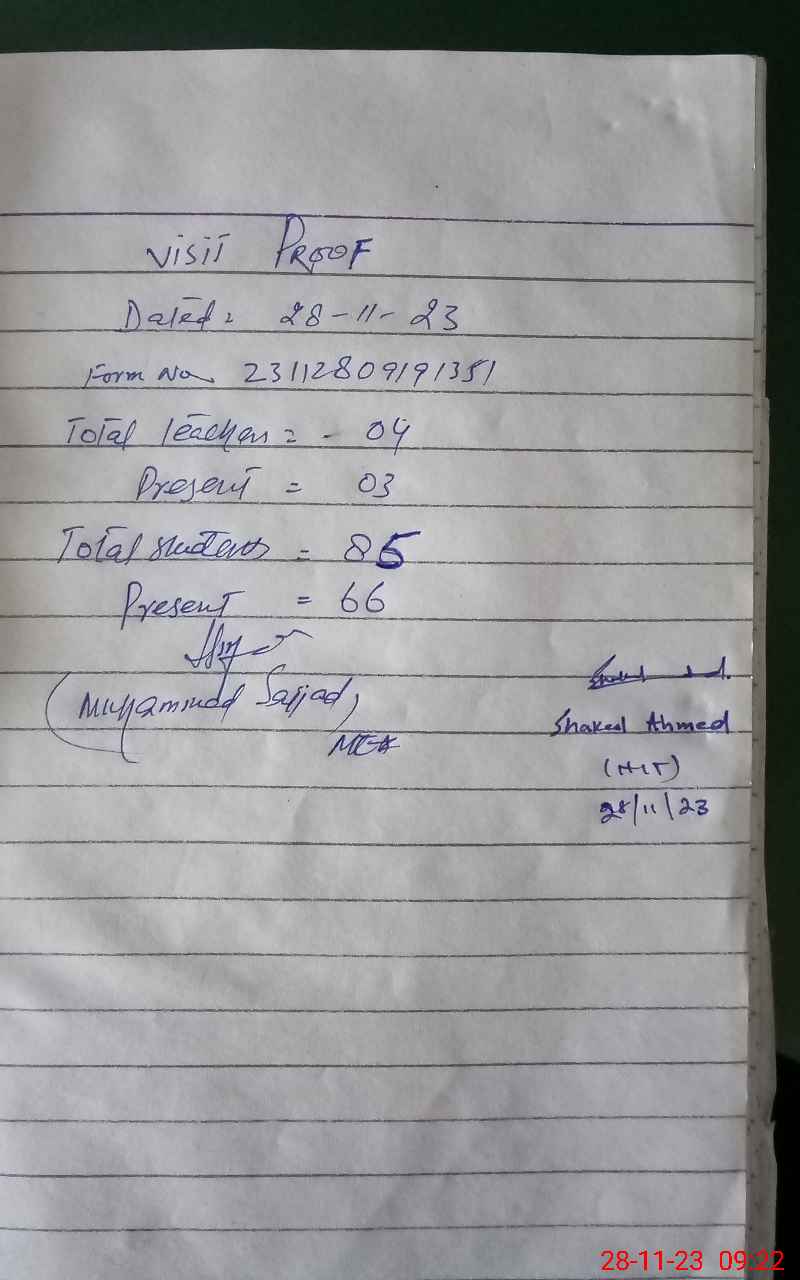 Visit Proof
Dated: 28-11-23
Form No. 23112809191351
Total teachers = - 04
Present = 03
Total students = 85
Present = 66
(Muhammad Sajjad)
MEA
Shakeel Ahmed
(H.T)
28/11/23
28-11-23 09:22